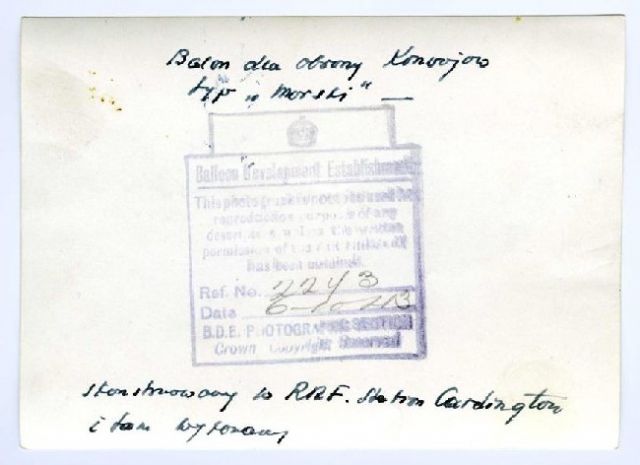 Balon dla obrony Konwojow
typ "Morski" —
Balloon Development Establishment
This photograph must not be used for
reproduction purposes of any
description unless the written
permission of the Air Ministry
has been obtained.
Ref. No. 2243
Date 6-10-43
B.D.E. PHOTOGRAPHIC SECTION
Crown Copyright Reserved
skonstruowany w RAF. Station Cardington
i tam wykonany